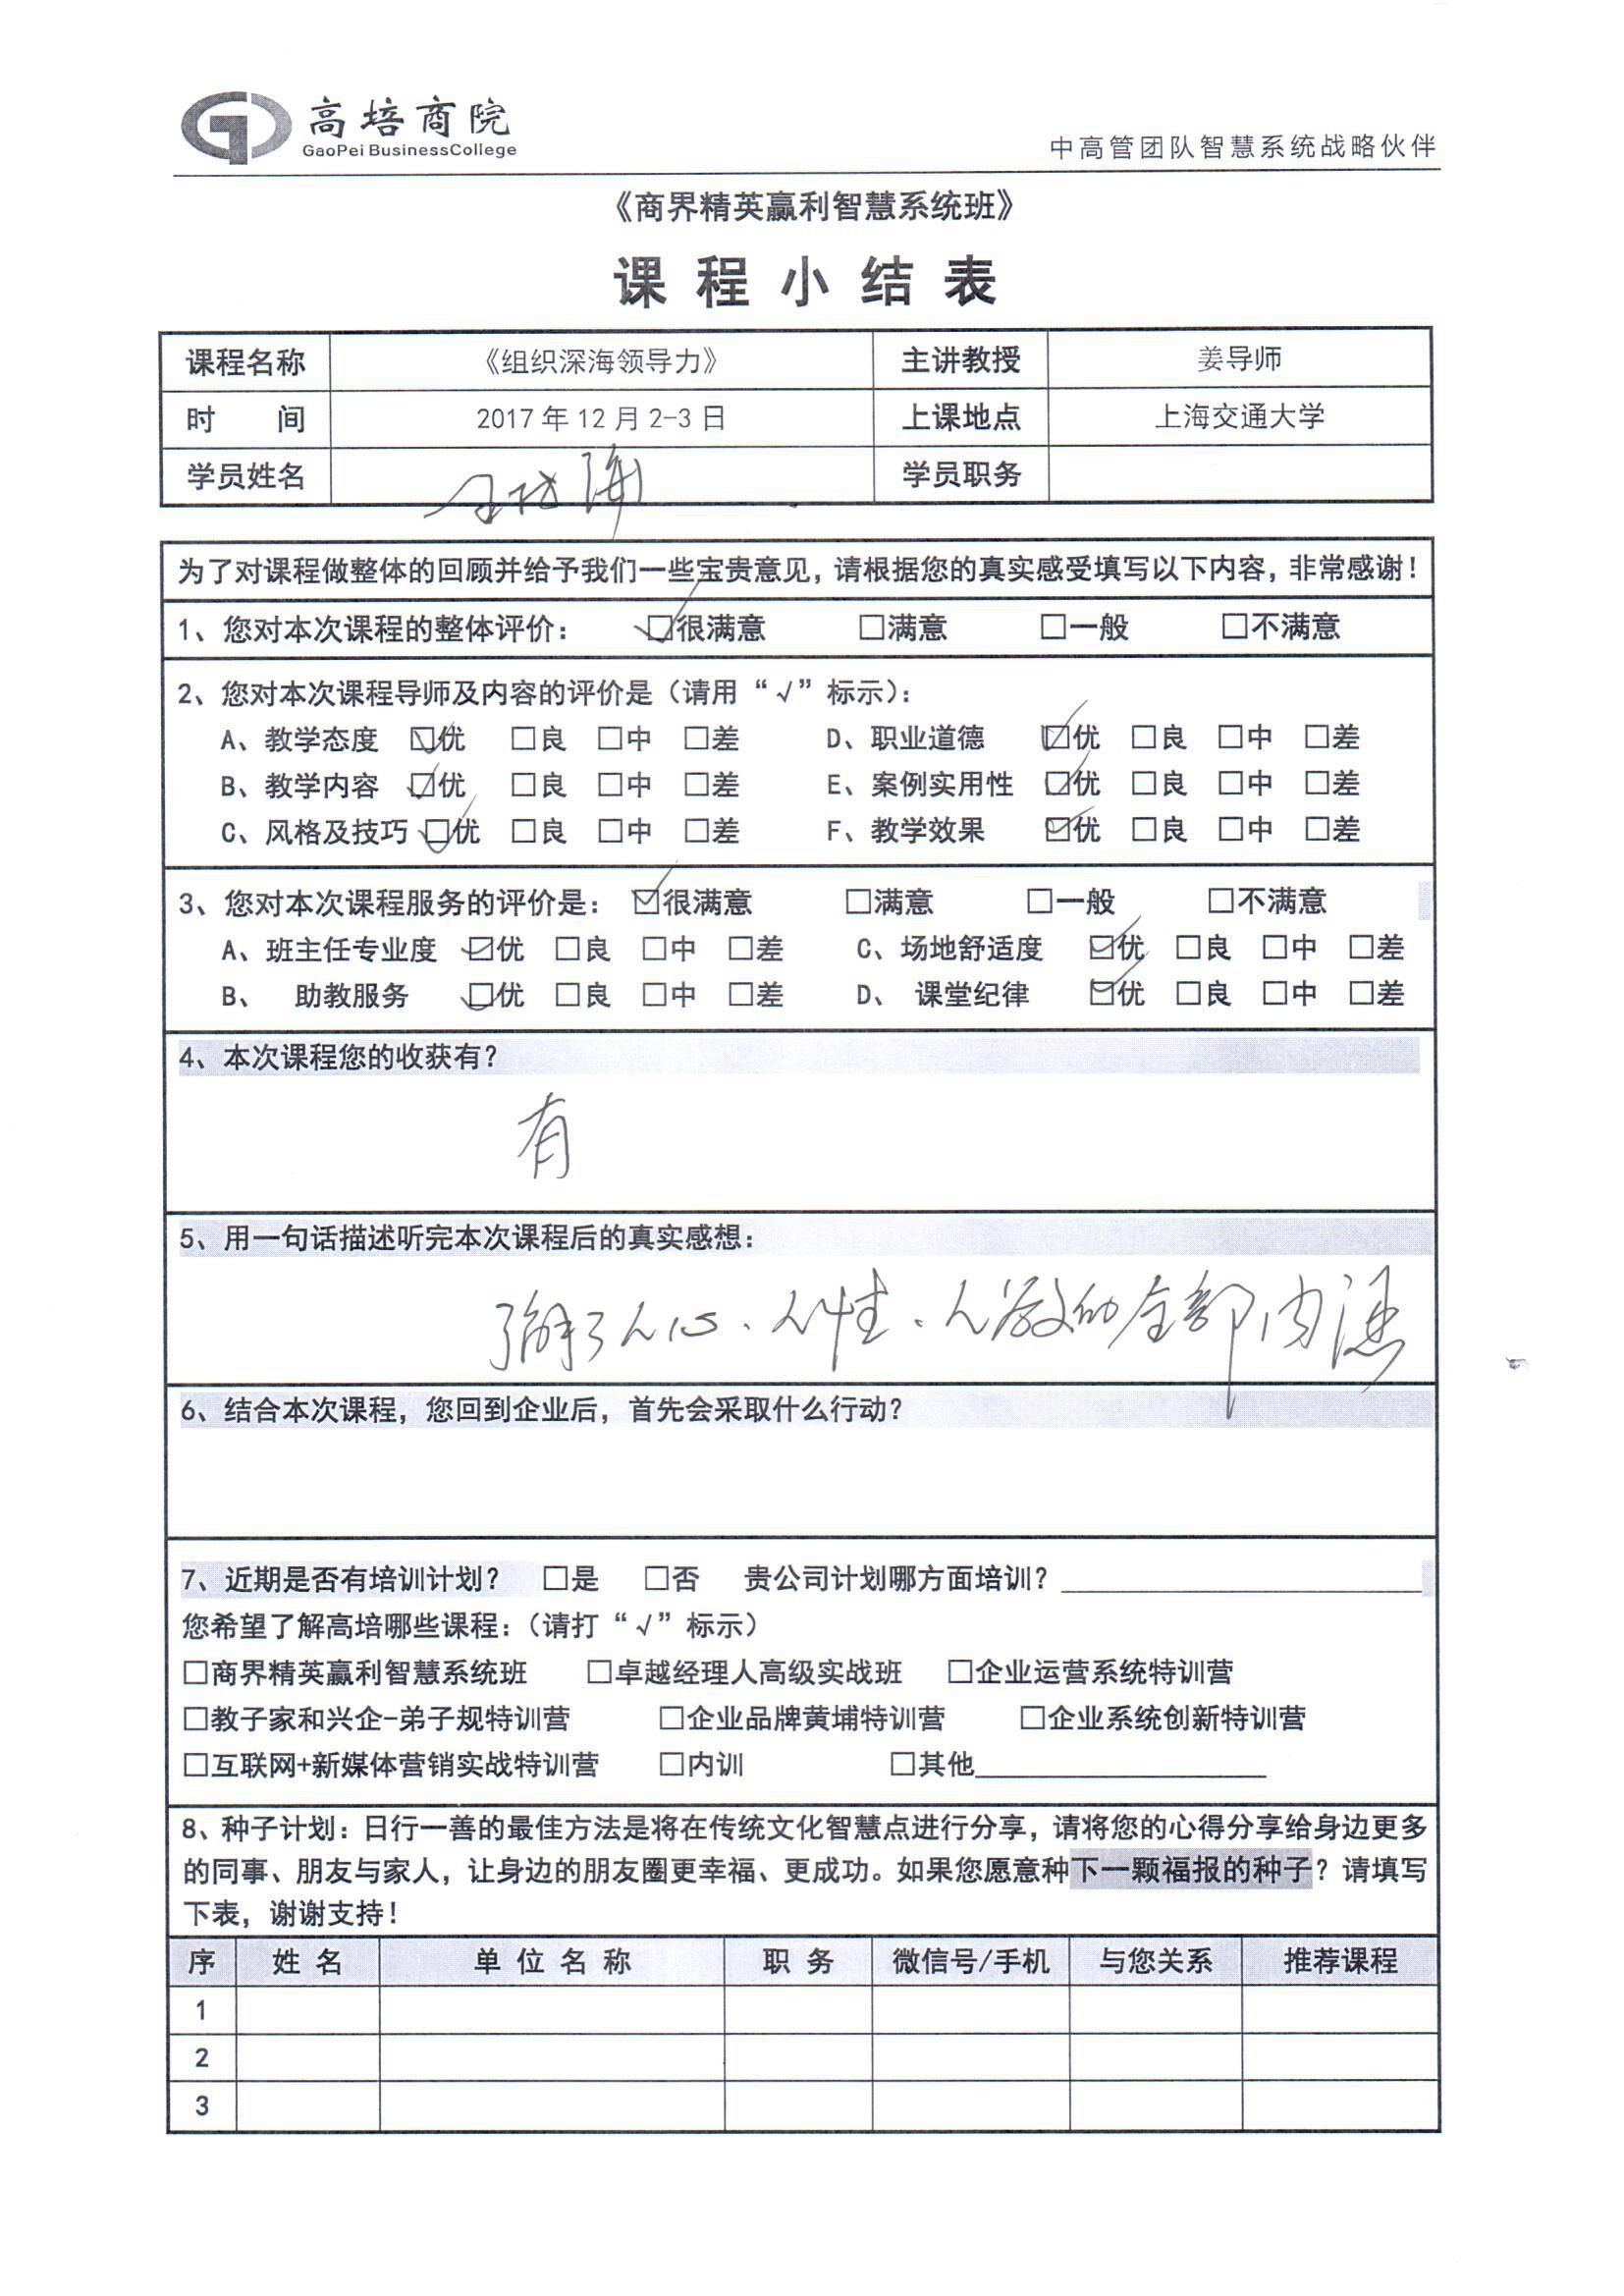 高培商院
GaoPei BusinessCollege
中高管团队智慧系统战略伙伴
《商界精英赢利智慧系统班》
课程小结表
课程名称 《组织深海领导力》 主讲教授 姜导师
时 间 2017年12月2-3日 上课地点 上海交通大学
学员姓名 学员职务
为了对课程做整体的回顾并给予我们一些宝贵意见，请根据您的真实感受填写以下内容，非常感谢！
1、您对本次课程的整体评价： ☑很满意 □满意 □一般 □不满意
2、您对本次课程导师及内容的评价是（请用“√”标示）：
A、教学态度 ☑优 □良 □中 □差 D、职业道德 ☑优 □良 □中 □差
B、教学内容 ☑优 □良 □中 □差 E、案例实用性 ☑优 □良 □中 □差
C、风格及技巧 ☑优 □良 □中 □差 F、教学效果 ☑优 □良 □中 □差
3、您对本次课程服务的评价是： ☑很满意 □满意 □一般 □不满意
A、班主任专业度 ☑优 □良 □中 □差 C、场地舒适度 ☑优 □良 □中 □差
B、 助教服务 ☑优 □良 □中 □差 D、 课堂纪律 ☑优 □良 □中 □差
4、本次课程您的收获有？
有
5、用一句话描述听完本次课程后的真实感想：
了解了人心、人性、人教的全部内涵
6、结合本次课程，您回到企业后，首先会采取什么行动？
7、近期是否有培训计划？ □是 □否 贵公司计划哪方面培训？
您希望了解高培哪些课程：（请打“√”标示）
□商界精英赢利智慧系统班 □卓越经理人高级实战班 □企业运营系统特训营
□教子家和兴企-弟子规特训营 □企业品牌黄埔特训营 □企业系统创新特训营
□互联网+新媒体营销实战特训营 □内训 □其他
8、种子计划：日行一善的最佳方法是将在传统文化智慧点进行分享，请将您的心得分享给身边更多
的同事、朋友与家人，让身边的朋友圈更幸福、更成功。如果您愿意种下一颗福报的种子？请填写
下表，谢谢支持！
序 姓名 单位名称 职务 微信号/手机 与您关系 推荐课程
1
2
3